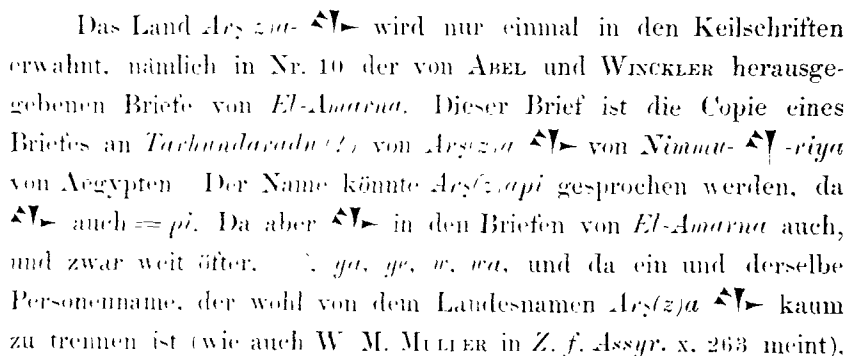 Das Land Arṣ(z)a- 𒉿 wird nur einmal in den Keilschriften
erwähnt, nämlich in Nr. 10 der von ABEL und WINCKLER herausge-
gebenen Briefe von El-Amarna. Dieser Brief ist die Copie eines
Briefes an Tarhundaradu(?) von Arṣ(z)a 𒉿 von Nimmu- -riya
von Aegypten Der Name könnte Arṣ(z)api gesprochen werden, da
𒉿 auch = pi. Da aber 𒉿 in den Briefen von El-Amarna auch,
und zwar weit öfter, ya, ye, w, wa, und da ein und derselbe
Personenname, der wohl von dem Landesnamen Arṣ(z)a 𒉿 kaum
zu trennen ist (wie auch W. M. MULLER in Z. f. Assyr. x, 263 meint),